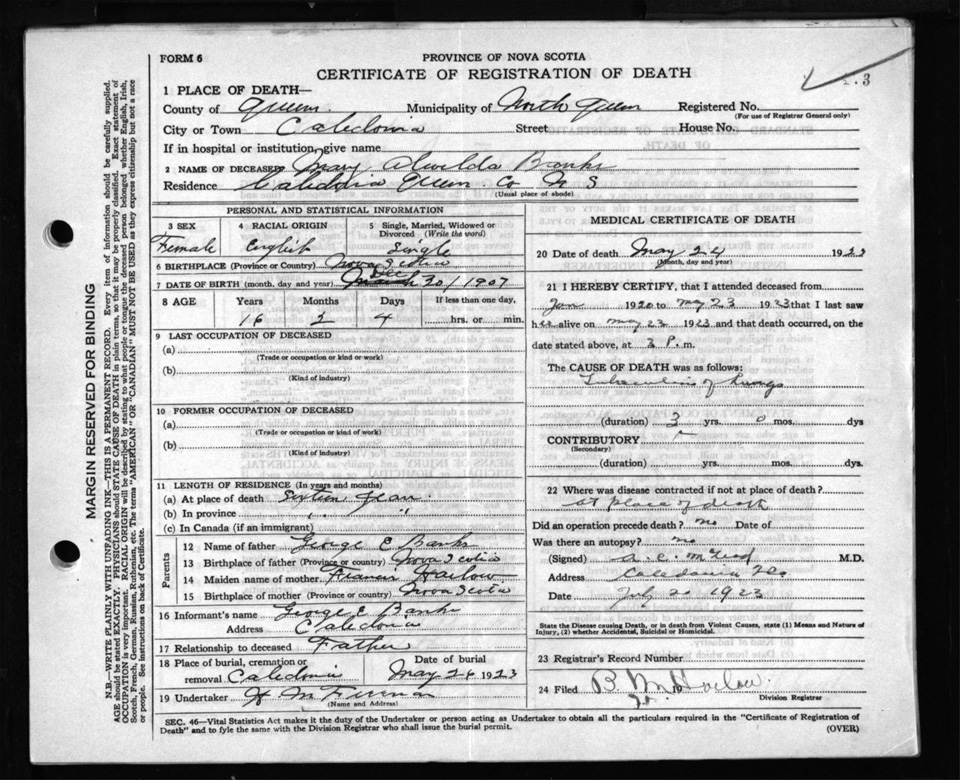 3
FORM 6
PROVINCE OF NOVA SCOTIA
CERTIFICATE OF REGISTRATION OF DEATH
1 PLACE OF DEATH—
County of Queens Municipality of North Queen Registered No.
(For use of Registrar General only)
City or Town Caledonia Street House No.
If in hospital or institution, give name
2 NAME OF DECEASED Mary Banks
Residence Caledonia Queens Co N S
(Usual place of abode)
PERSONAL AND STATISTICAL INFORMATION
3 SEX 4 RACIAL ORIGIN 5 Single, Married, Widowed or Divorced (Write the word)
Female English Single
6 BIRTHPLACE (Province or Country) Nova Scotia
7 DATE OF BIRTH (month, day and year) Dec 20/1907
8 AGE Years Months Days If less than one day,
16 2 4 hrs. or min.
9 LAST OCCUPATION OF DECEASED
(a)
(Trade or occupation or kind of work)
(b)
(Kind of industry)
10 FORMER OCCUPATION OF DECEASED
(a)
(Trade or occupation or kind of work)
(b)
(Kind of industry)
11 LENGTH OF RESIDENCE (In years and months)
(a) At place of death Sixteen years
(b) In province " "
(c) In Canada (if an immigrant)
Parents
12 Name of father George E Banks
13 Birthplace of father (Province or country) Nova Scotia
14 Maiden name of mother Frances Harlow
15 Birthplace of mother (Province or country) Nova Scotia
16 Informant's name George E Banks
Address Caledonia
17 Relationship to deceased Father
18 Place of burial, cremation or removal Caledonia Date of burial May 26 1923
19 Undertaker H M
(Name and Address)
MEDICAL CERTIFICATE OF DEATH
20 Date of death May 24 1923
(Month, day and year)
21 I HEREBY CERTIFY, that I attended deceased from
Jan 1920 to May 23 1923 that I last saw
her alive on May 23 1923 and that death occurred, on the
date stated above, at 3 P. m.
The CAUSE OF DEATH was as follows:
Tuberculosis of Lungs
(duration) 3 yrs. 0 mos. dys
CONTRIBUTORY
(Secondary)
(duration) yrs. mos. dys.
22 Where was disease contracted if not at place of death?
At place of death
Did an operation precede death? no Date of
Was there an autopsy? no
(Signed) M.D.
Address Caledonia
Date July 20 1923
State the Disease causing Death, or in death from Violent Causes, state (1) Means and Nature of Injury, (2) whether Accidental, Suicidal or Homicidal.
23 Registrar's Record Number
24 Filed 19 B M Harlow
Division Registrar
SEC. 46—Vital Statistics Act makes it the duty of the Undertaker or person acting as Undertaker to obtain all the particulars required in the "Certificate of Registration of
Death" and to fyle the same with the Division Registrar who shall issue the burial permit. (OVER)
MARGIN RESERVED FOR BINDING
N.B.—WRITE PLAINLY WITH UNFADING INK—THIS IS A PERMANENT RECORD. Every item of information should be carefully supplied.
AGE should be stated EXACTLY. PHYSICIANS should STATE CAUSE OF DEATH in plain terms, so that it may be properly classified. Exact statement of
OCCUPATION is very important. RACIAL ORIGIN will be described by stating to what people or tongue the deceased person belonged whether English, Irish,
Scotch, French, German, Russian, Ruthenian, etc. The terms "AMERICAN" OR "CANADIAN" MUST NOT BE USED as they express citizenship but not a race
or people. See instructions on back of Certificate.